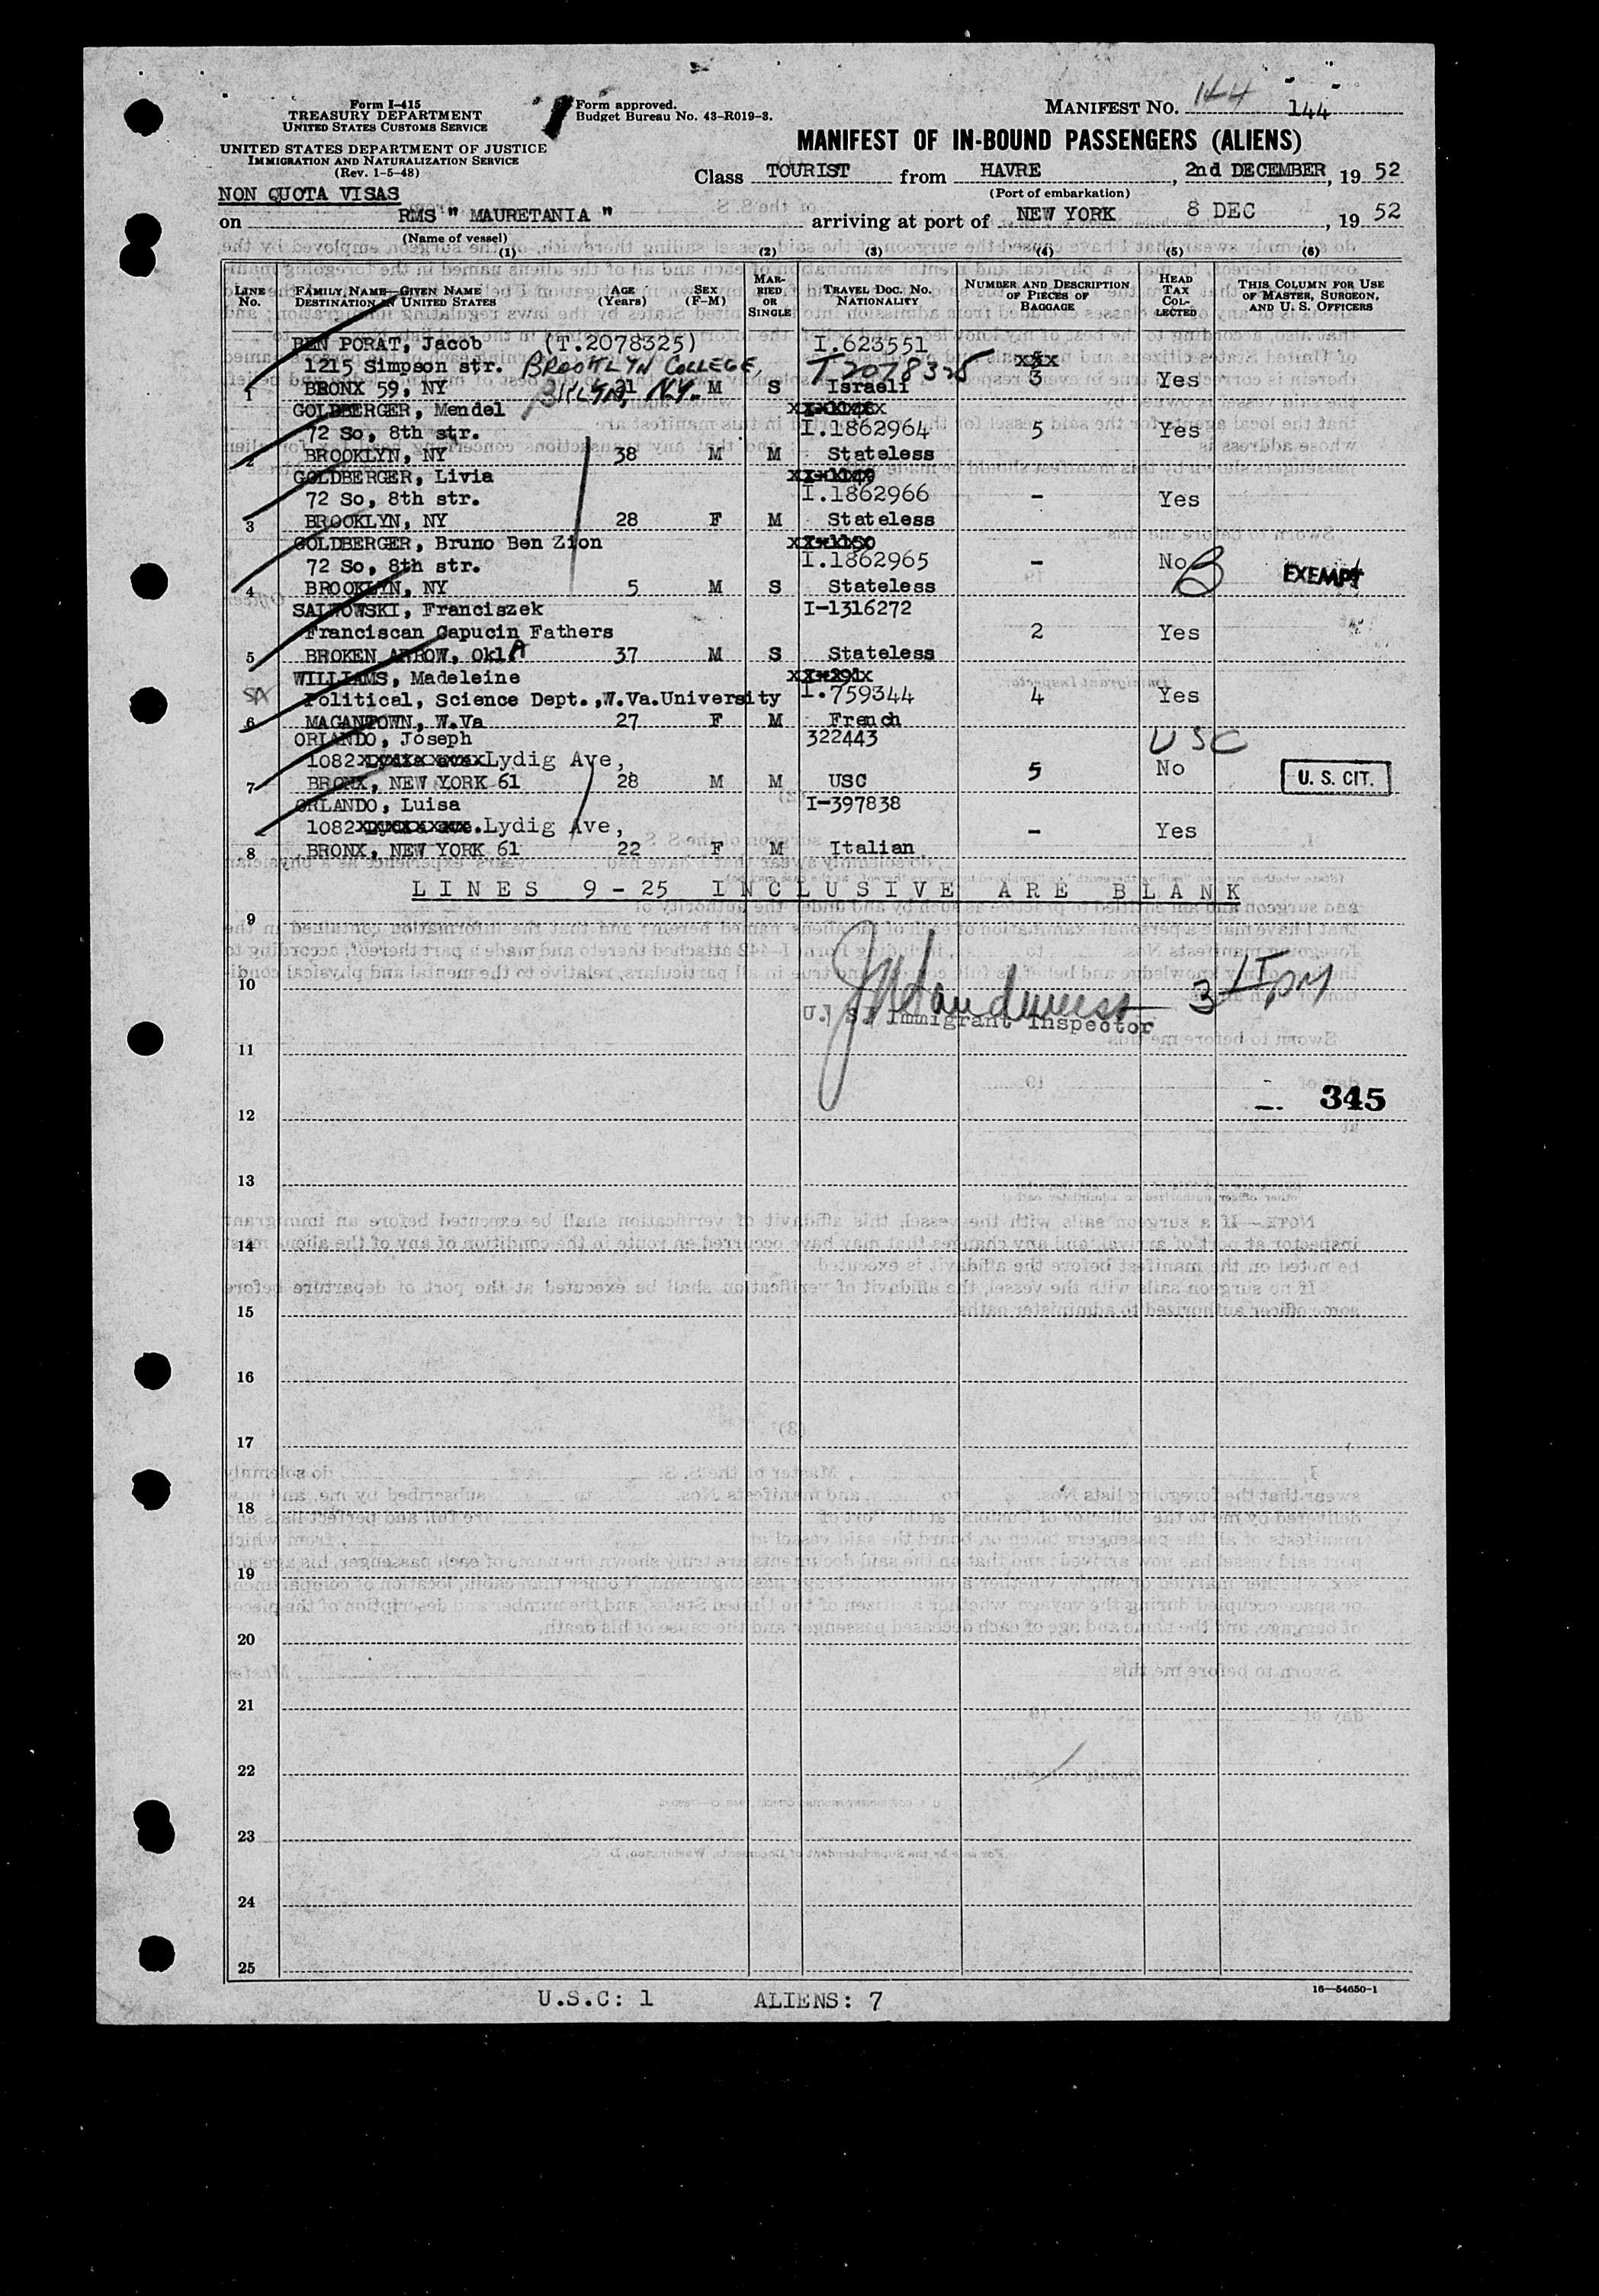 Form I-415
TREASURY DEPARTMENT
UNITED STATES CUSTOMS SERVICE
UNITED STATES DEPARTMENT OF JUSTICE
IMMIGRATION AND NATURALIZATION SERVICE
(Rev. 1-5-48)
Form approved.
Budget Bureau No. 43-R019-3.
MANIFEST NO. 144 144
MANIFEST OF IN-BOUND PASSENGERS (ALIENS)
Class TOURIST from HAVRE, 2nd DECEMBER, 19 52
(Port of embarkation)
NON QUOTA VISAS
on RMS " MAURETANIA " arriving at port of NEW YORK 8 DEC, 19 52
(Name of vessel)
(1) (2) (3) (4) (5) (6)
LINE No. FAMILY NAME—GIVEN NAME DESTINATION IN UNITED STATES AGE (Years) SEX (F-M) MARRIED OR SINGLE TRAVEL DOC. NO. NATIONALITY NUMBER AND DESCRIPTION OF PIECES OF BAGGAGE HEAD TAX COLLECTED THIS COLUMN FOR USE OF MASTER, SURGEON, AND U. S. OFFICERS
BEN PORAT, Jacob (T.2078325) I.623551
1215 Simpson str. BROOKLYN COLLEGE, T2078325 xxx
1 BRONX 59, NY BKLYN, N.Y. 21 M S Israeli 3 Yes
GOLDBERGER, Mendel
72 So, 8th str. I.1862964 5 Yes
2 BROOKLYN, NY 38 M M Stateless
GOLDBERGER, Livia
72 So, 8th str. I.1862966 - Yes
3 BROOKLYN, NY 28 F M Stateless
GOLDBERGER, Bruno Ben Zion
72 So, 8th str. I.1862965 - No EXEMPT
4 BROOKLYN, NY 5 M S Stateless
SALWOWSKI, Franciszek I-1316272
Franciscan Capucin Fathers 2 Yes
5 BROKEN ARROW, OklA 37 M S Stateless
WILLIAMS, Madeleine
Political, Science Dept.,W.Va.University I.759344 4 Yes
6 MAGANTOWN, W.Va 27 F M French
ORLANDO, Joseph 322443 USC
1082 Lydig Ave, 5 No U. S. CIT.
7 BRONX, NEW YORK 61 28 M M USC
ORLANDO, Luisa I-397838
1082 Lydig Ave, - Yes
8 BRONX, NEW YORK 61 22 F M Italian
LINES 9-25 INCLUSIVE ARE BLANK
9
10
U. S. Immigrant Inspector
11
345
12
13
14
15
16
17
18
19
20
21
22
23
24
25
16—54650-1
U.S.C: 1 ALIENS: 7